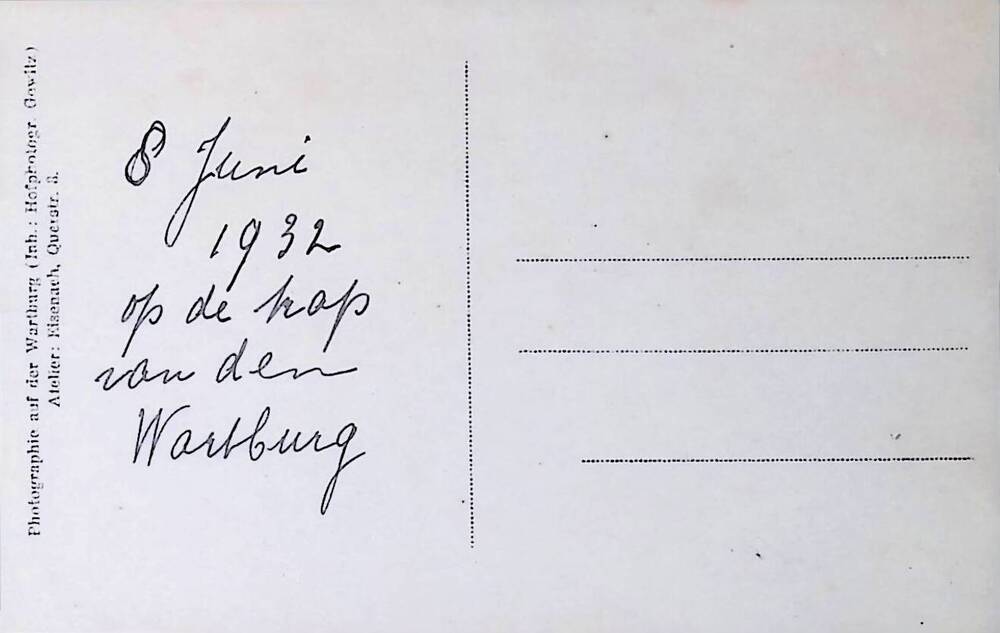 Photographie auf der Wartburg (Inh.: Hofphotogr. Gewitz)
Atelier: Eisenach, Querstr. 3.
8 Juni
1932
op de kop
van den
Wartburg